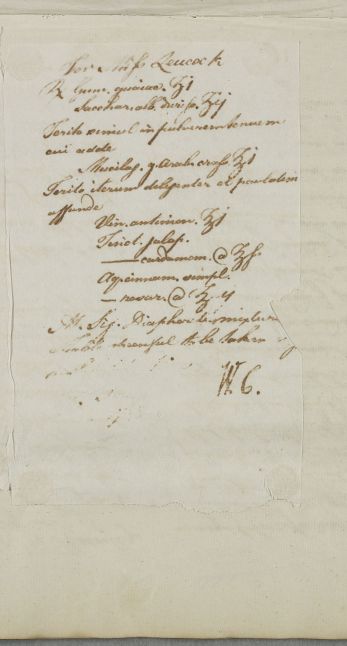 For Miss Leacock
℞ Gum. guaiac. ʒj
Sacchar. alb. duriss. ʒij
Terito simul in pulverem tenuem
cui adde
Mucilag. g. arab. crass. ʒj
Terito iterum diligenter et paulatim
affunde
Vin. antimon. ʒj
Tinct. jalap.
— cardamom. @ ʒß
Aq. cinnam. simpl.
— rosar. @ ℥ij
M. Sig. Diaphoretic mixture
to be taken
W C.